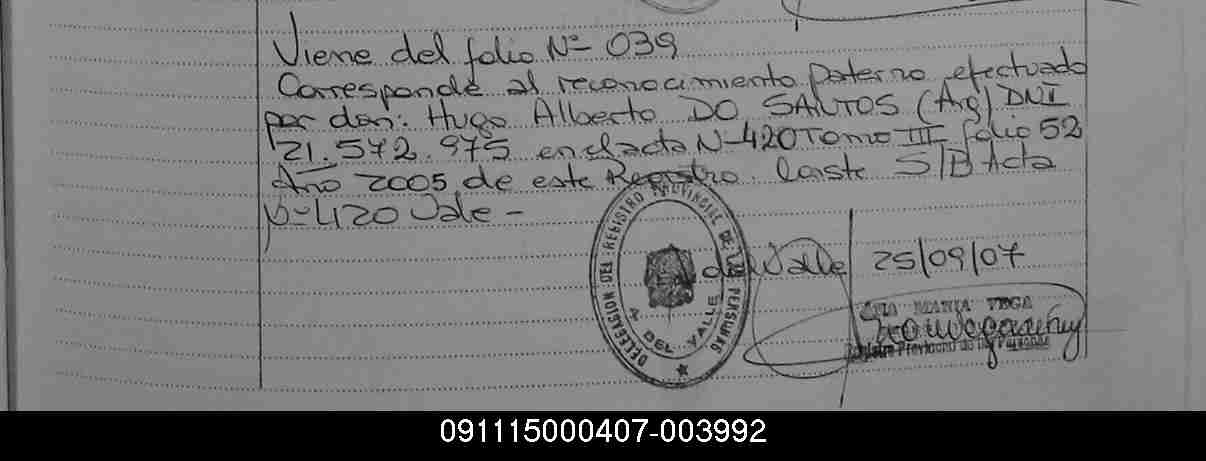 Viene del folio Nº 039
Corresponde al reconocimiento Paterno efectuado
por don: Hugo Alberto DO SANTOS (Arg) DNI
21.572.975 en el acta Nº 420 Tomo III folio 52
Año 2005 de este Registro. Conste S/B Acta
Nº 420 Vale -
DELEGACION DEL REGISTRO PROVINCIAL DE LAS PERSONAS
A DEL VALLE
del Valle 25/09/07
MARIA VEGA
Registro Provincial de las Personas
091115000407-003992